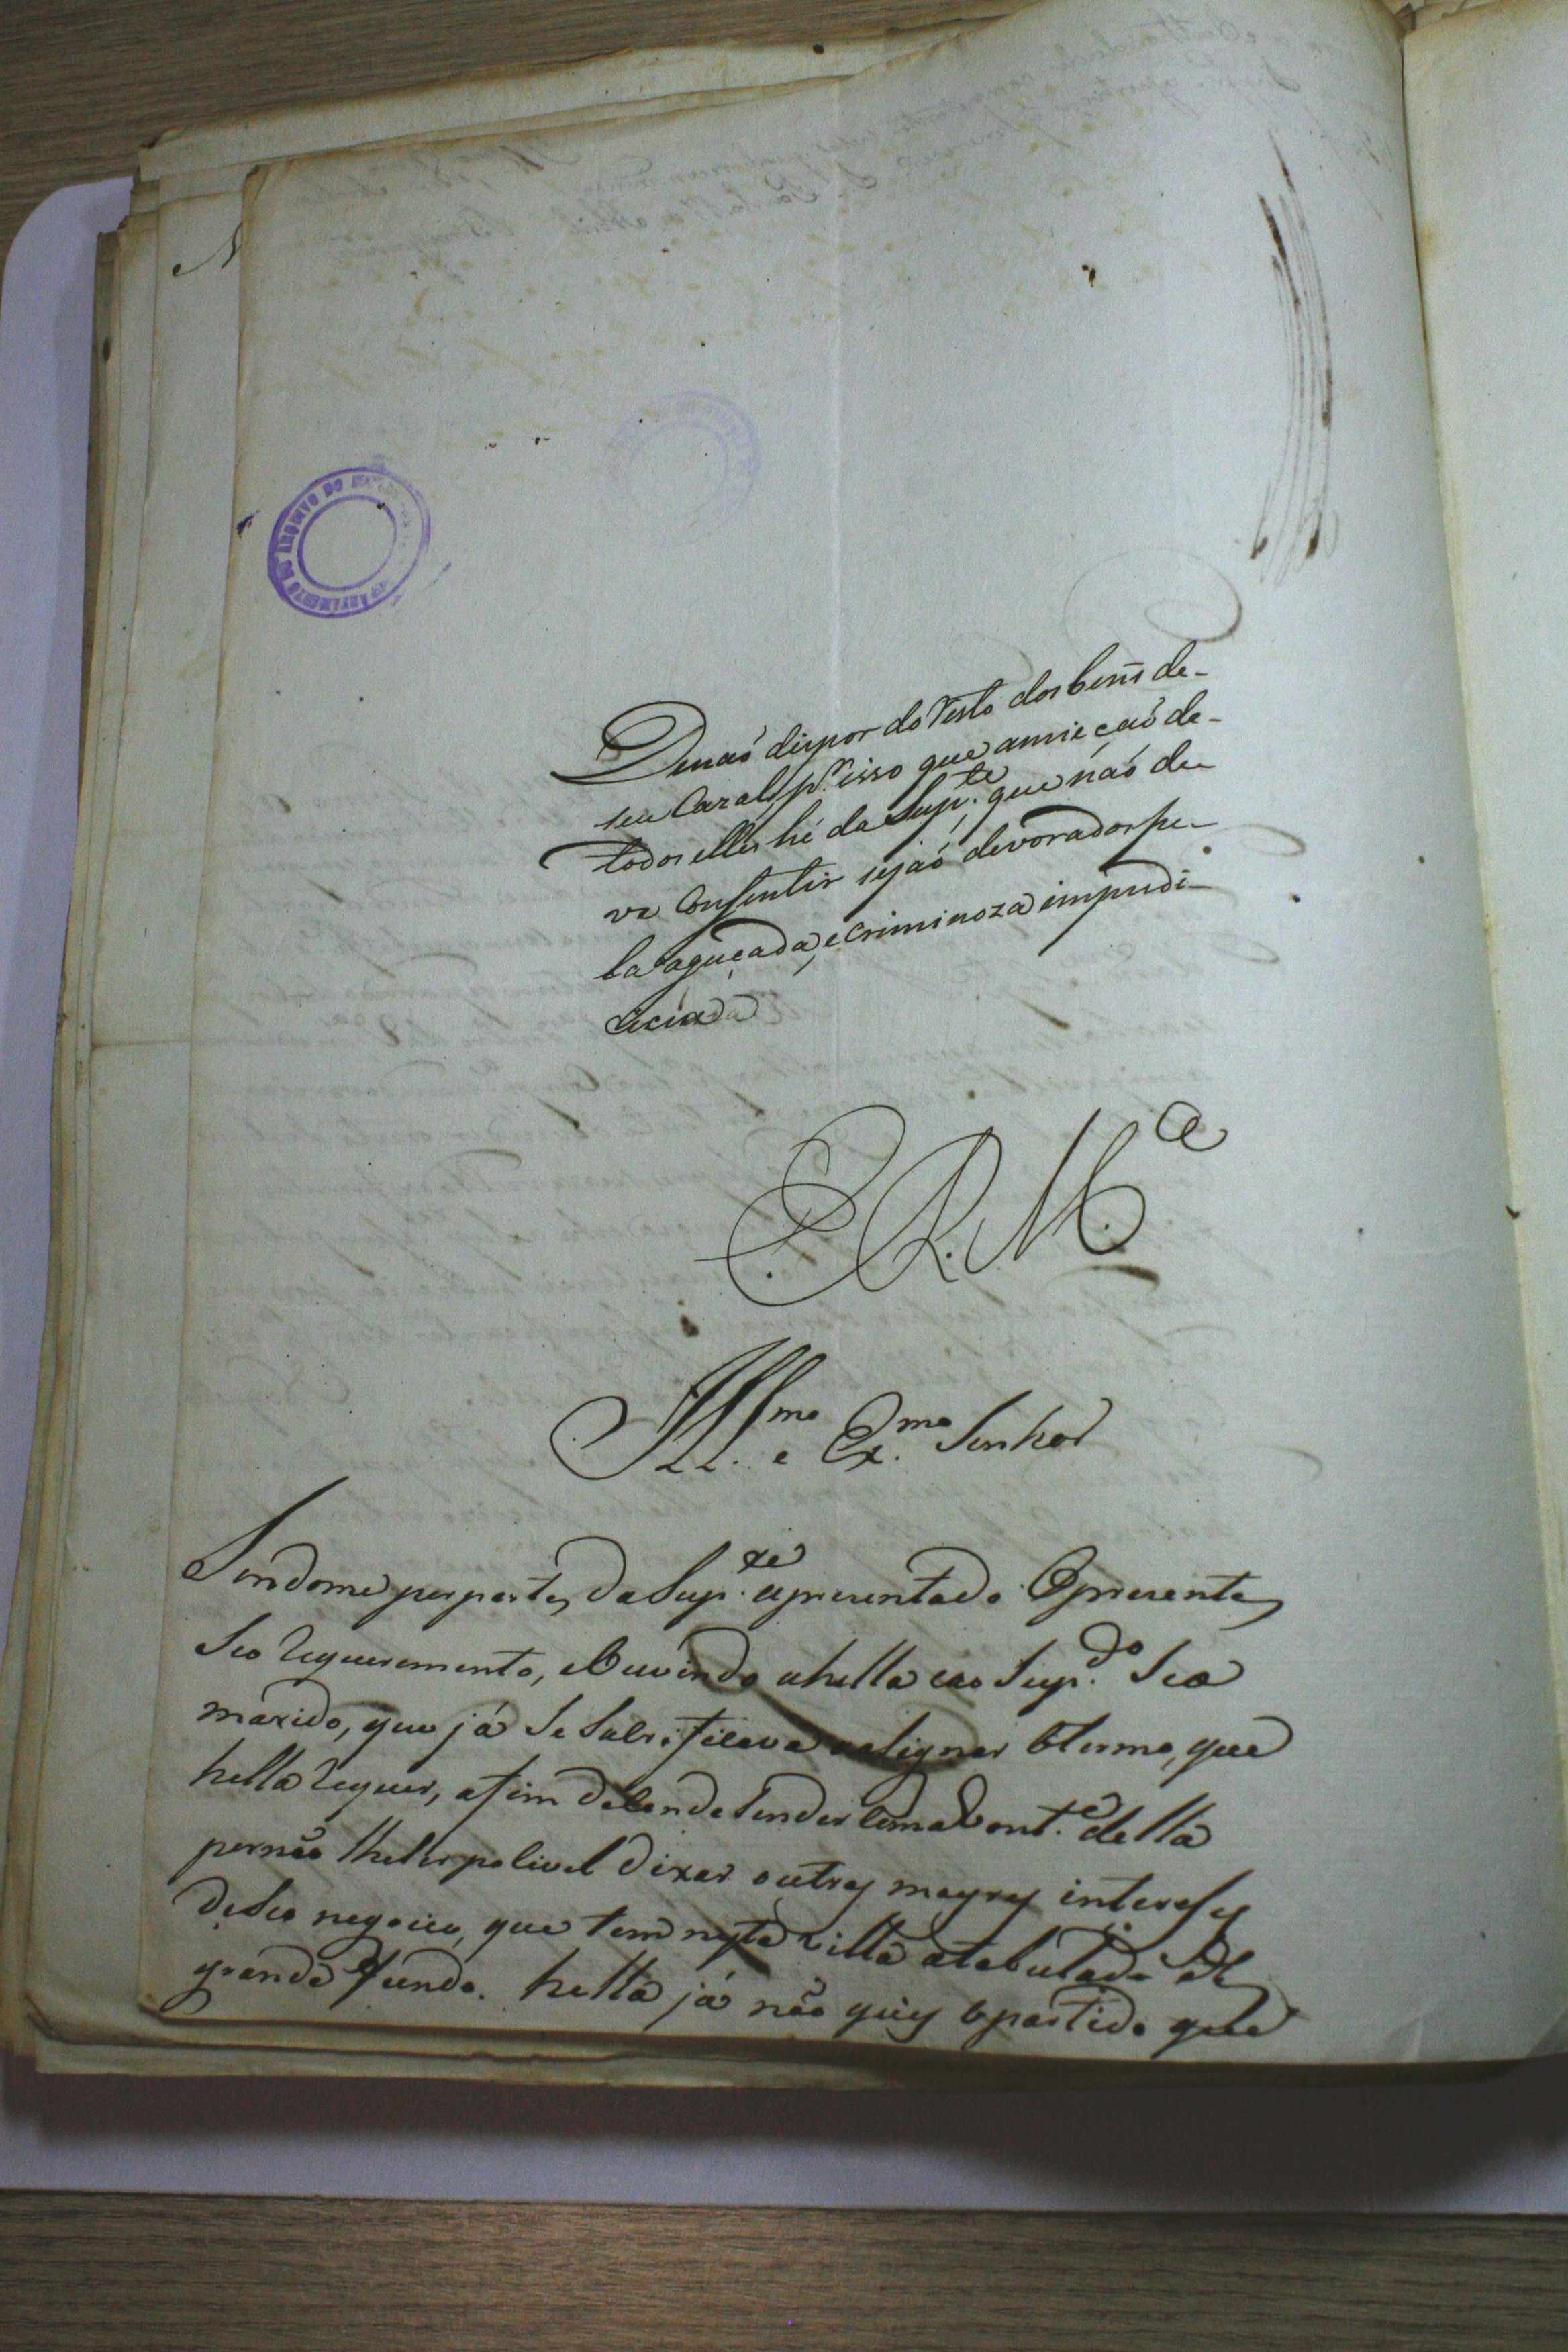 De naó dispor do resto dos beñs de-
seu Cazal, p.r isso que a meieçaó de-
todos elles hé da Sup.te, que náo de-
ve Consentir sejaó devorados pe-
la aguçada, e criminoza impudi-
cicia
E. R. M.ce
Ill.mo e Ex.mo Senhor
Sendome por parte da Sup.te apresentado o presente
Seo requerimento, e Ouvindo a hella e ao Sup.do Seo
marido, que já Se asignar o termo, que
hella requer, afim de la com a Vont.e della
por não lhe ser posivel dixar outros mayores intereses
de Seo negocio, que tem nesta villa de
grande fundo. hella já não quis o partido que